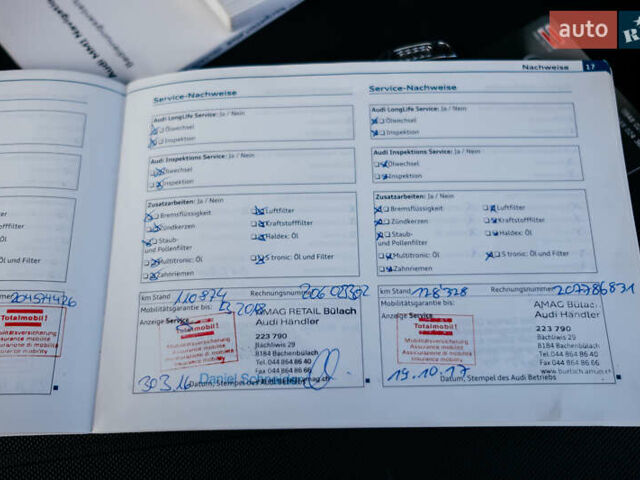 auto
Audi MMI Navigation
Nachweise 17
Service-Nachweise
Audi LongLife Service: Ja / Nein
Ölwechsel
Inspektion
Audi Inspektions Service: Ja / Nein
Ölwechsel
Inspektion
Zusatzarbeiten: Ja / Nein
Bremsflüssigkeit
Luftfilter
Zündkerzen
Kraftstofffilter
Staub-
und Pollenfilter
Haldex: Öl
Multitronic: Öl
S tronic: Öl und Filter
Zahnriemen
km Stand 110'874 Rechnungsnummer
Mobilitätsgarantie bis:
Anzeige Service
AMAG RETAIL Bülach
Audi Händler
Totalmobil!
Mobilitätsversicherung
Assurance mobilité
Assicurazione di mobilità
Insurance mobility
223 790
Bächliwis 29
8184 Bachenbülach
Tel. 044 864 86 40
Fax 044 864 86 66
30.3.16
Datum, Stempel des Audi
Service-Nachweise
Audi LongLife Service: Ja / Nein
Ölwechsel
Inspektion
Audi Inspektions Service: Ja / Nein
Ölwechsel
Inspektion
Zusatzarbeiten: Ja / Nein
Bremsflüssigkeit
Luftfilter
Zündkerzen
Kraftstofffilter
Staub-
und Pollenfilter
Haldex: Öl
Multitronic: Öl
S tronic: Öl und Filter
Zahnriemen
km Stand 128'328 Rechnungsnummer 207786831
Mobilitätsgarantie bis:
Anzeige Service
AMAG Bülac
Audi Händler
Totalmobil!
Mobilitätsversicherung
Assurance mobilité
Assicurazione di mobilità
Insurance mobility
223 790
Bächliwis 29
8184 Bachenbülach
Tel.044 864 86 40
Fax 044 864 86 66
19.10.17
Datum, Stempel des Audi Betriebs
und Filter
204574426
Totalmobil!